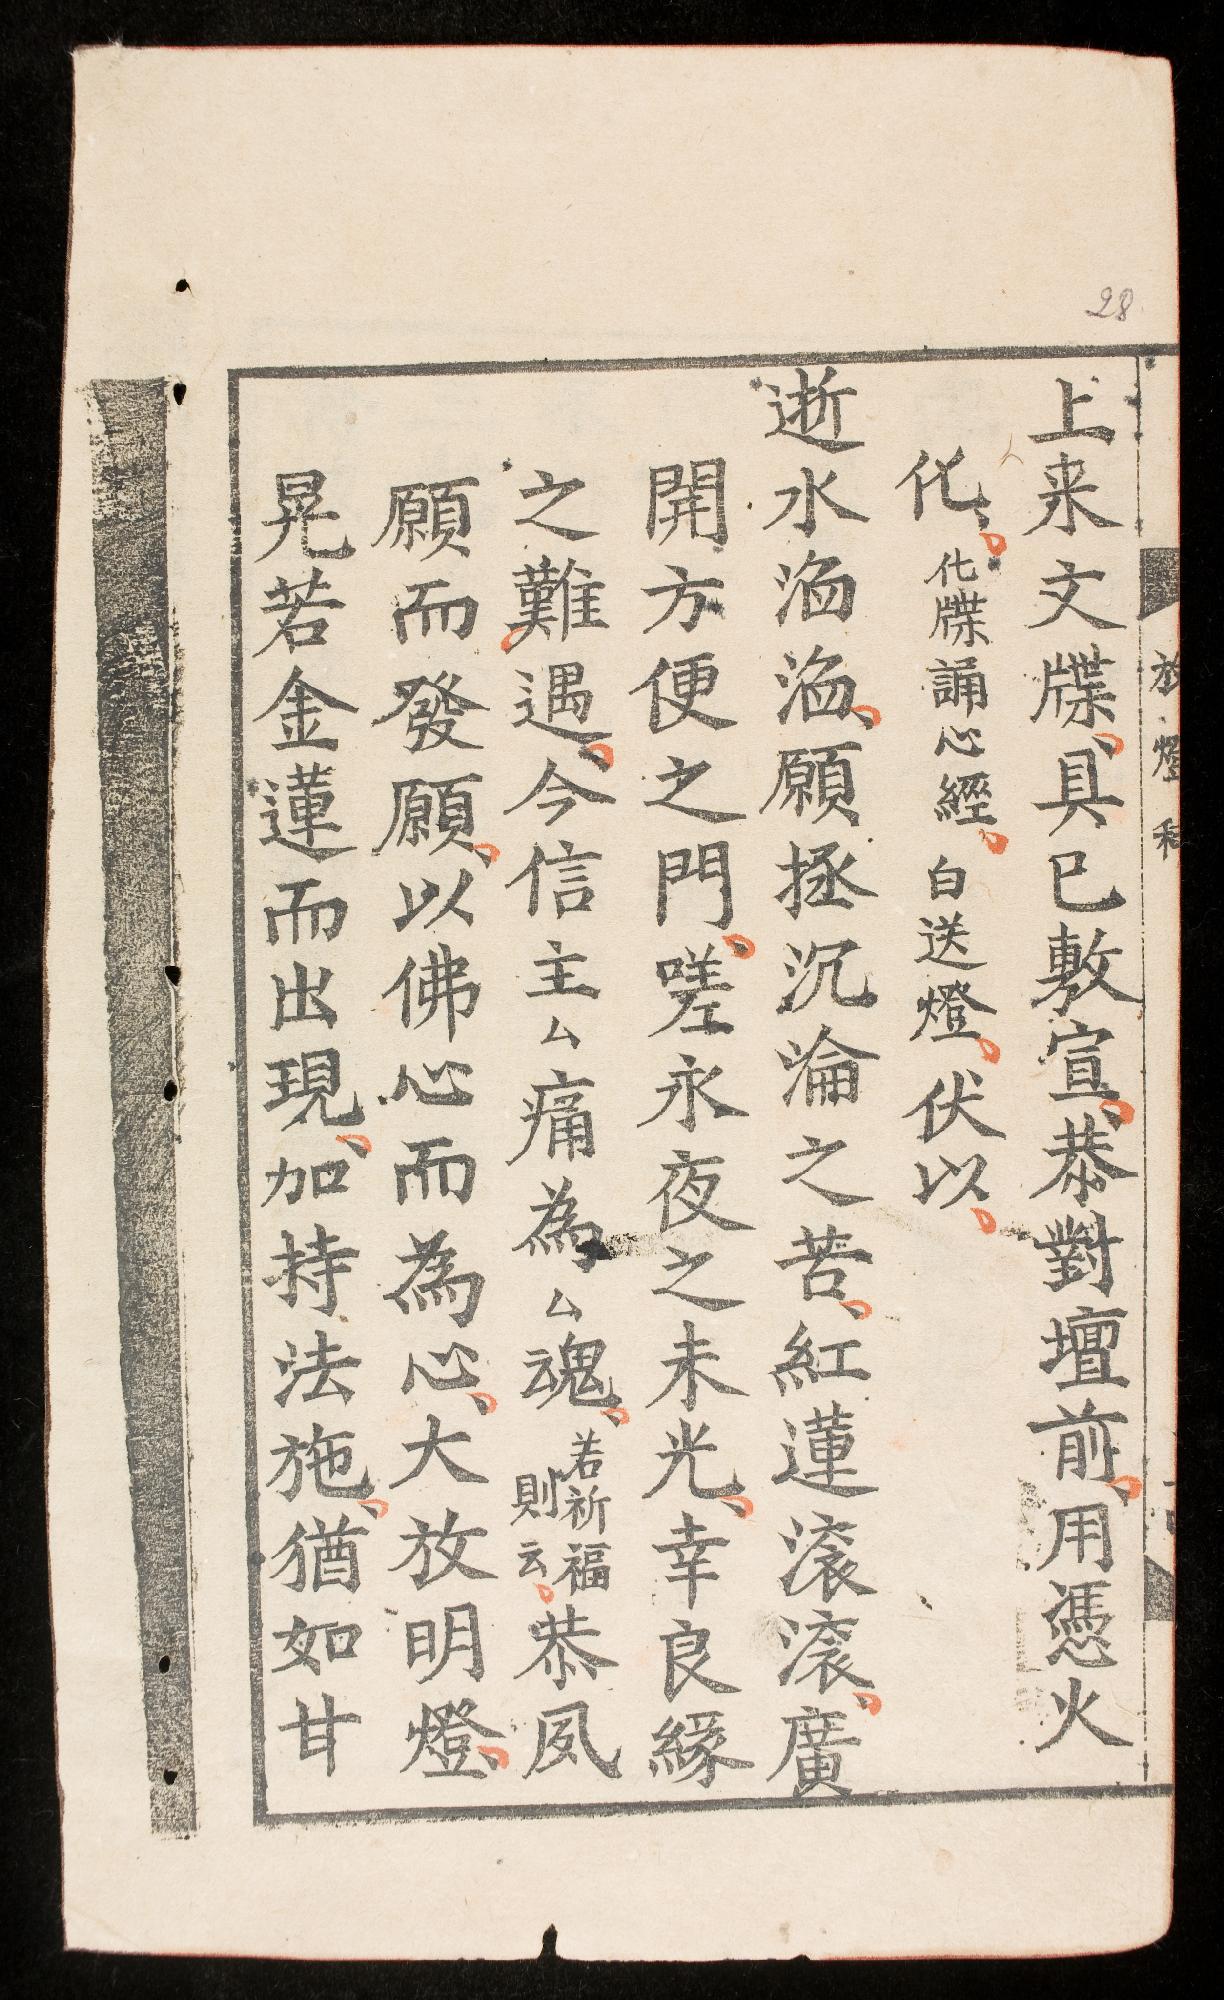 28
放燈科
上来文牒具已敷宣恭對壇前用憑火
化化牒誦心經白送燈伏以
逝水滔滔願拯沉淪之苦紅蓮滚滚廣
開方便之門嗟永夜之未光幸良緣
之難遇今信主厶痛為厶魂若祈福則云恭夙
願而發願以佛心而為心大放明燈
晃若金蓮而出現加持法施猶如甘